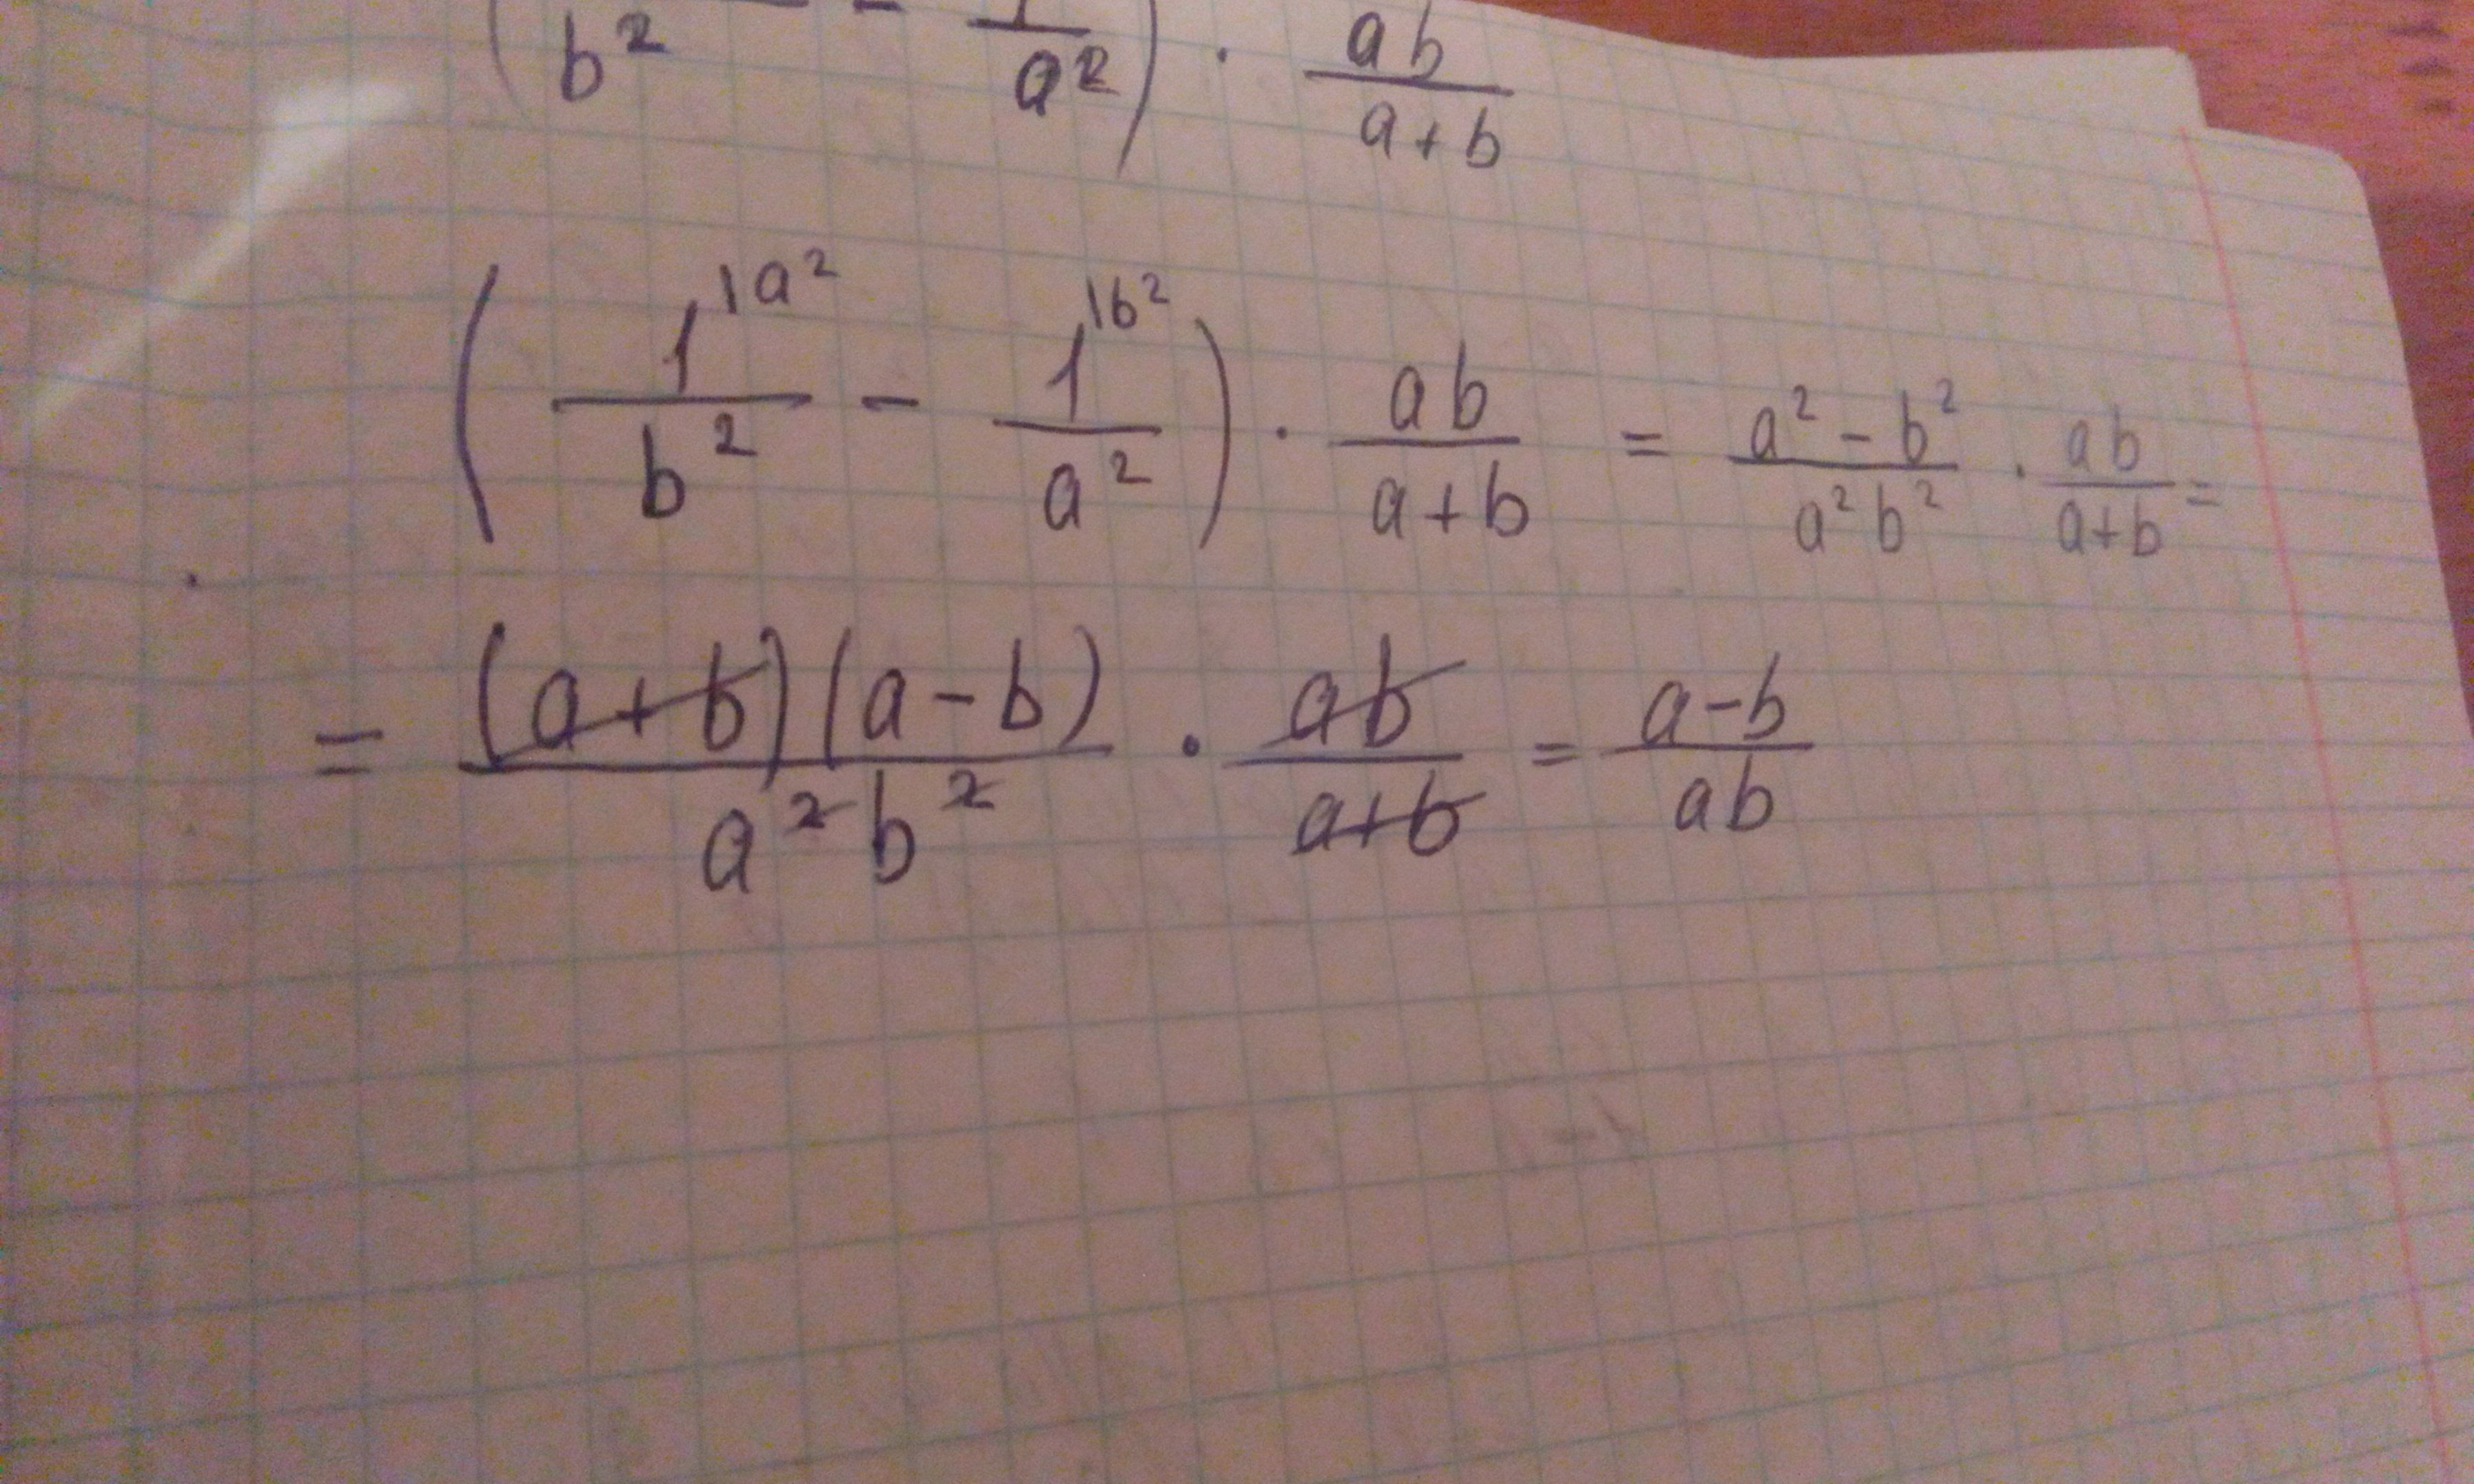 ( /b² - 1/a² ) · ab/(a+b)
( 1^{|a²}/b² - 1^{|b²}/a² ) · ab/(a+b) = (a² - b²)/(a²b²) · ab/(a+b) =
= (a+b)(a-b)/(a²b²) · ab/(a+b) = (a-b)/(ab)